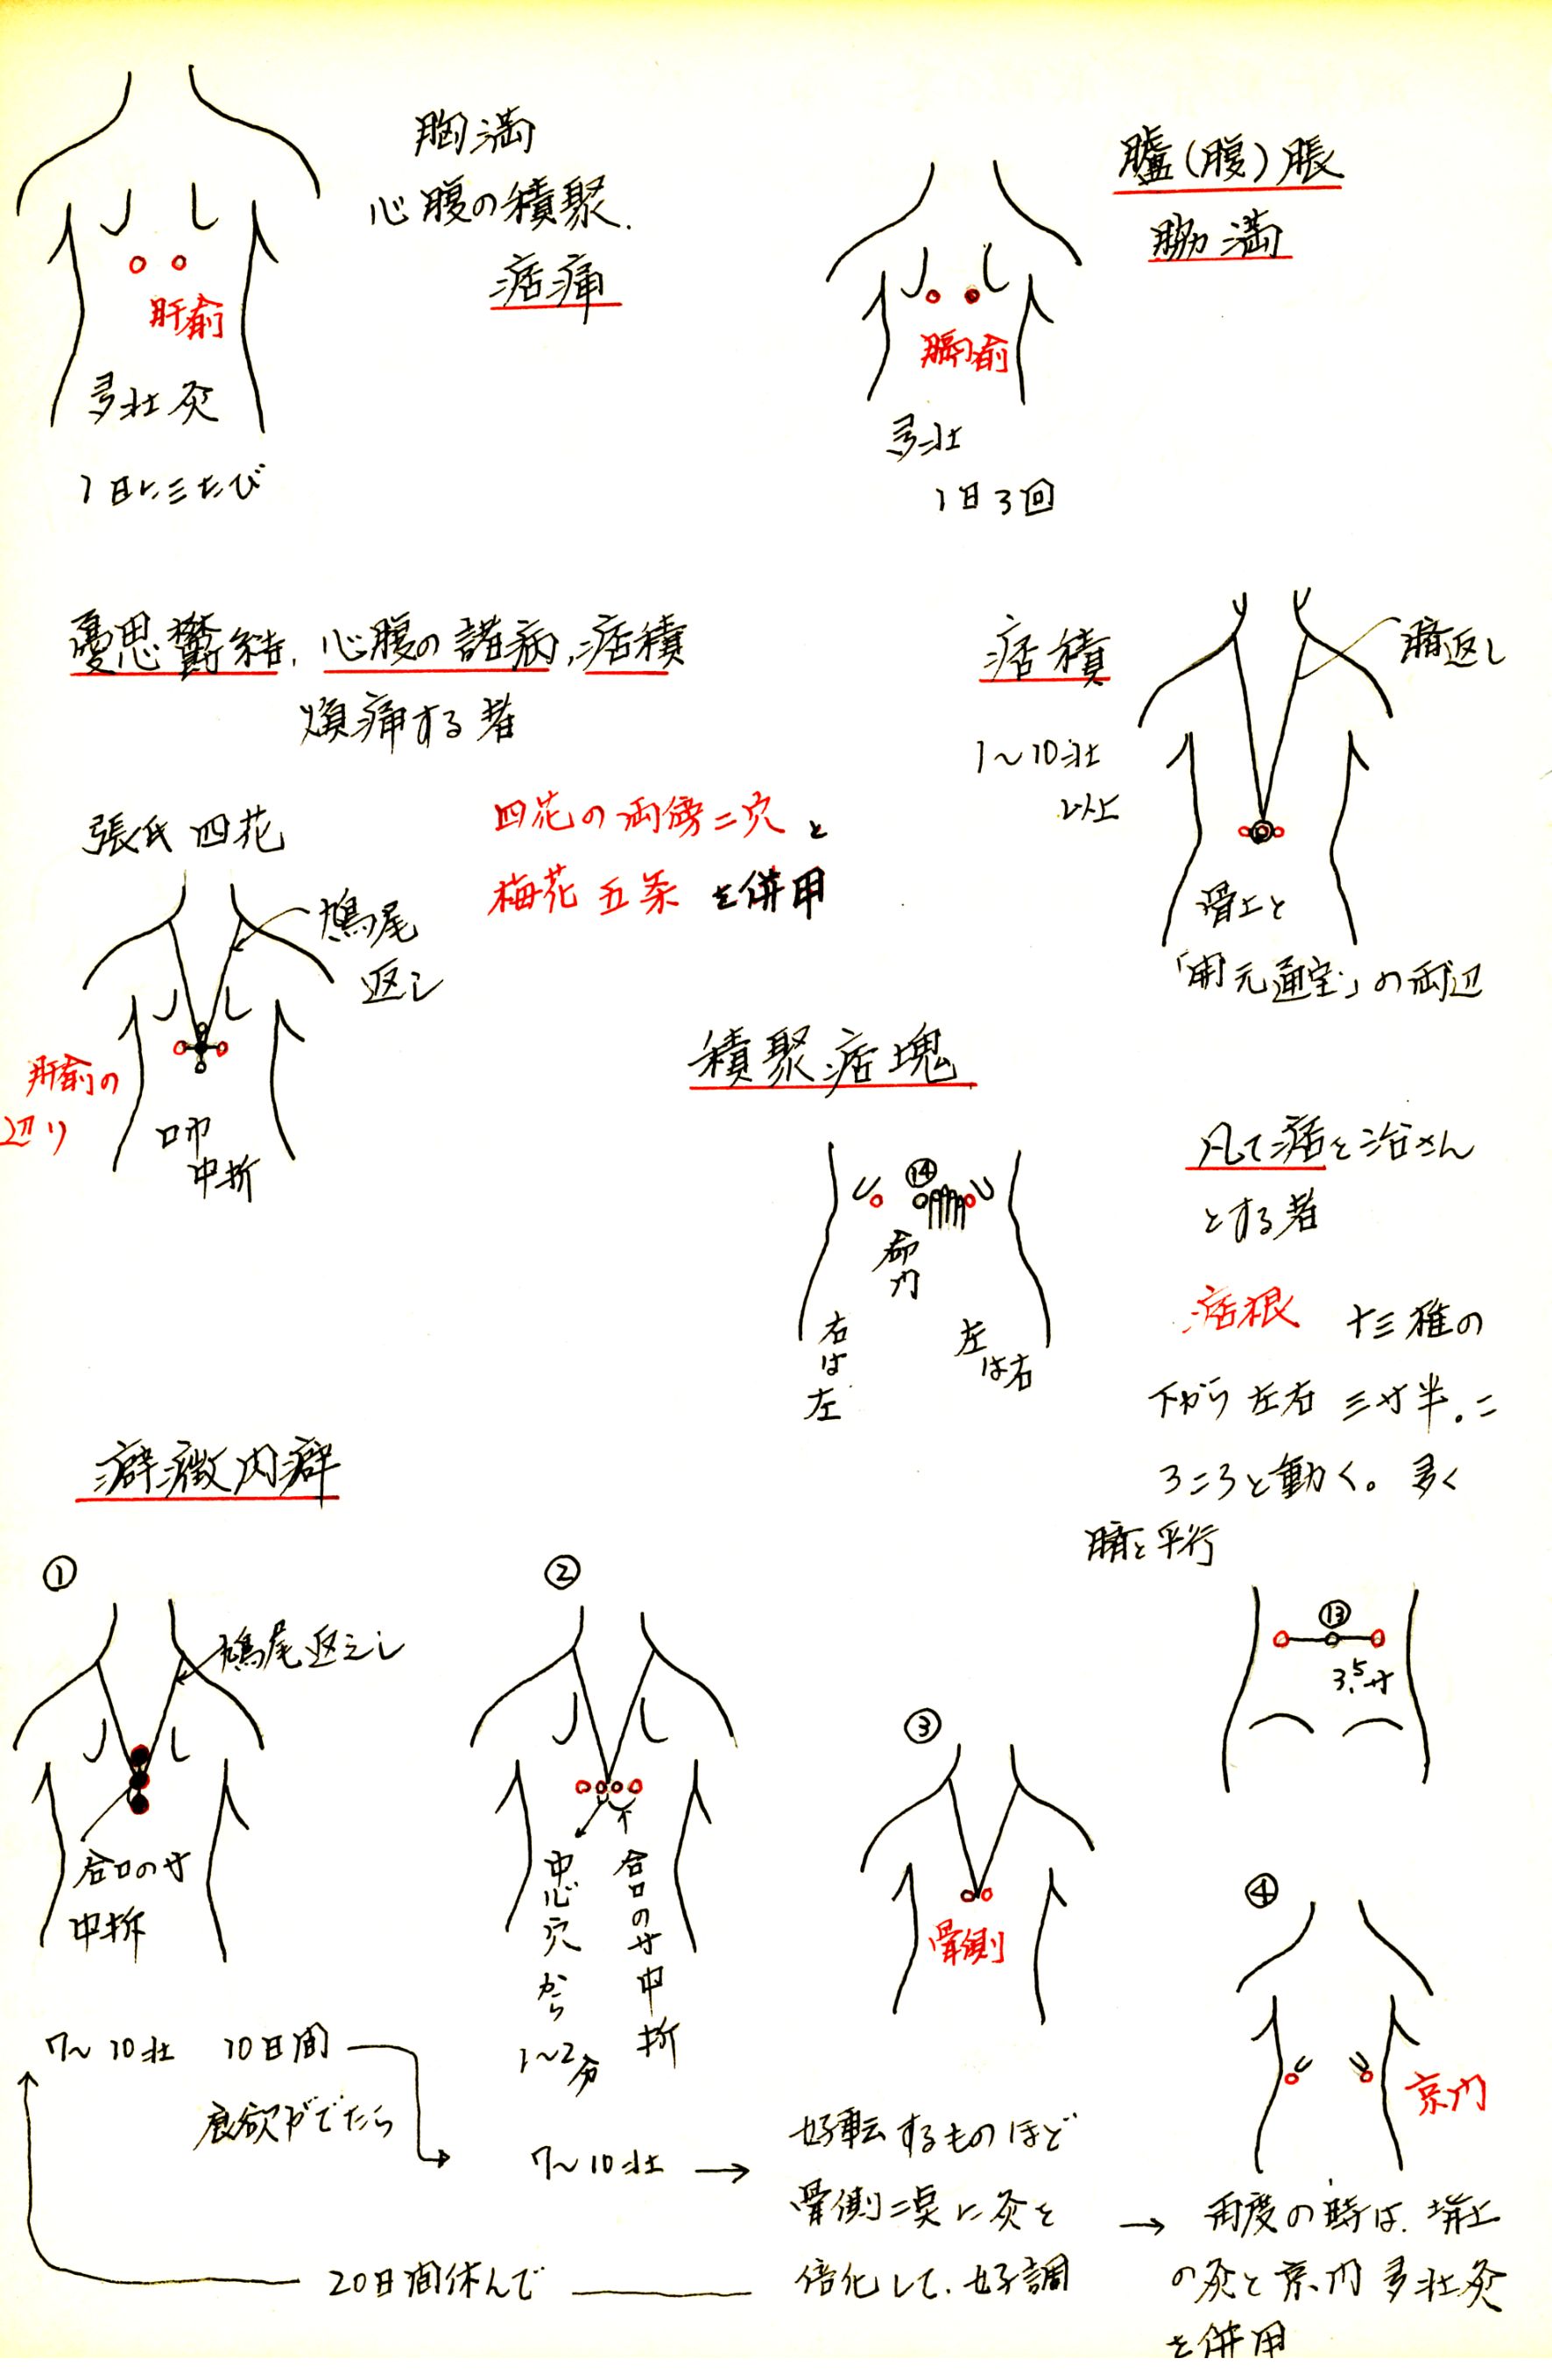 胸満
心腹の積聚.
痞痛
肝兪
多壮灸
1日に三たび
臚(腹)脹
脇満
膈兪
多壮
1日3回
憂思鬱結,心腹の諸病,痞積
煩痛する者
張氏四花
四花の両傍二穴と
梅花五条を併用
鳩尾
返し
肝兪の
辺り
口巾
中折
痞積
1〜10壮
以上
臍返し
骨上と
「開元通宝」の両辺
積聚痞塊
⑭
命門
右は左
左は右
凡て痞を治さん
とする者
痞根 十三椎の
下から左右三寸半。こ
ろころと動く。多く
臍と平行
⑬
3.5寸
癖癥内癖
①
鳩尾返えし
合口の寸
中折
7〜10壮 10日間
食欲がでたら
②
中心穴から
1〜2分
合口の寸中折
7〜10壮 →
③
骨側
好転するものほど
骨側二点に灸を
倍化して.好調
20日間休んで
④
京門
→ 再度の時は.
の灸と京門多壮灸
を併用